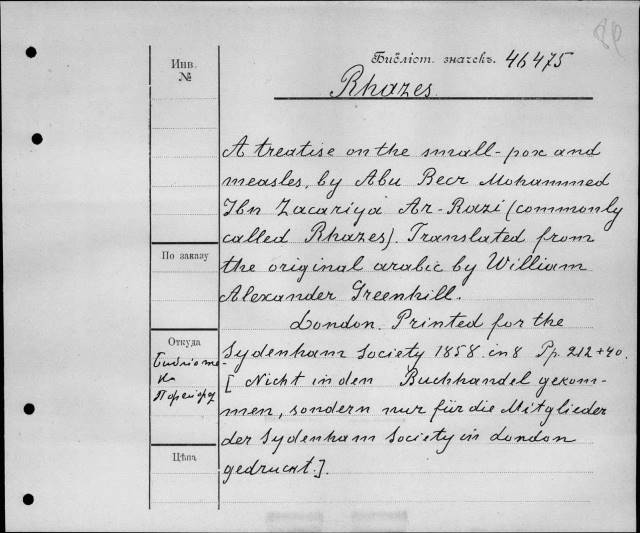 89
Библіот. значекъ. 46475
Rhazes.
Инв.
№
A treatise on the small-pox and
measles, by Abu Becr Mohammed
Ibn Zacariya Ar-Razi (commonly
called Rhazes). Translated from
the original arabic by William
Alexander Greenhill.
London. Printed for the
Sydenham Society 1858. in 8 Pp. 212 + 40.
[Nicht in den Buchhandel gekom-
men, sondern nur für die Mitglieder
der Sydenham Society in London
gedruckt.].
По заказу
Откуда
Библіоте-
ка
Цѣна